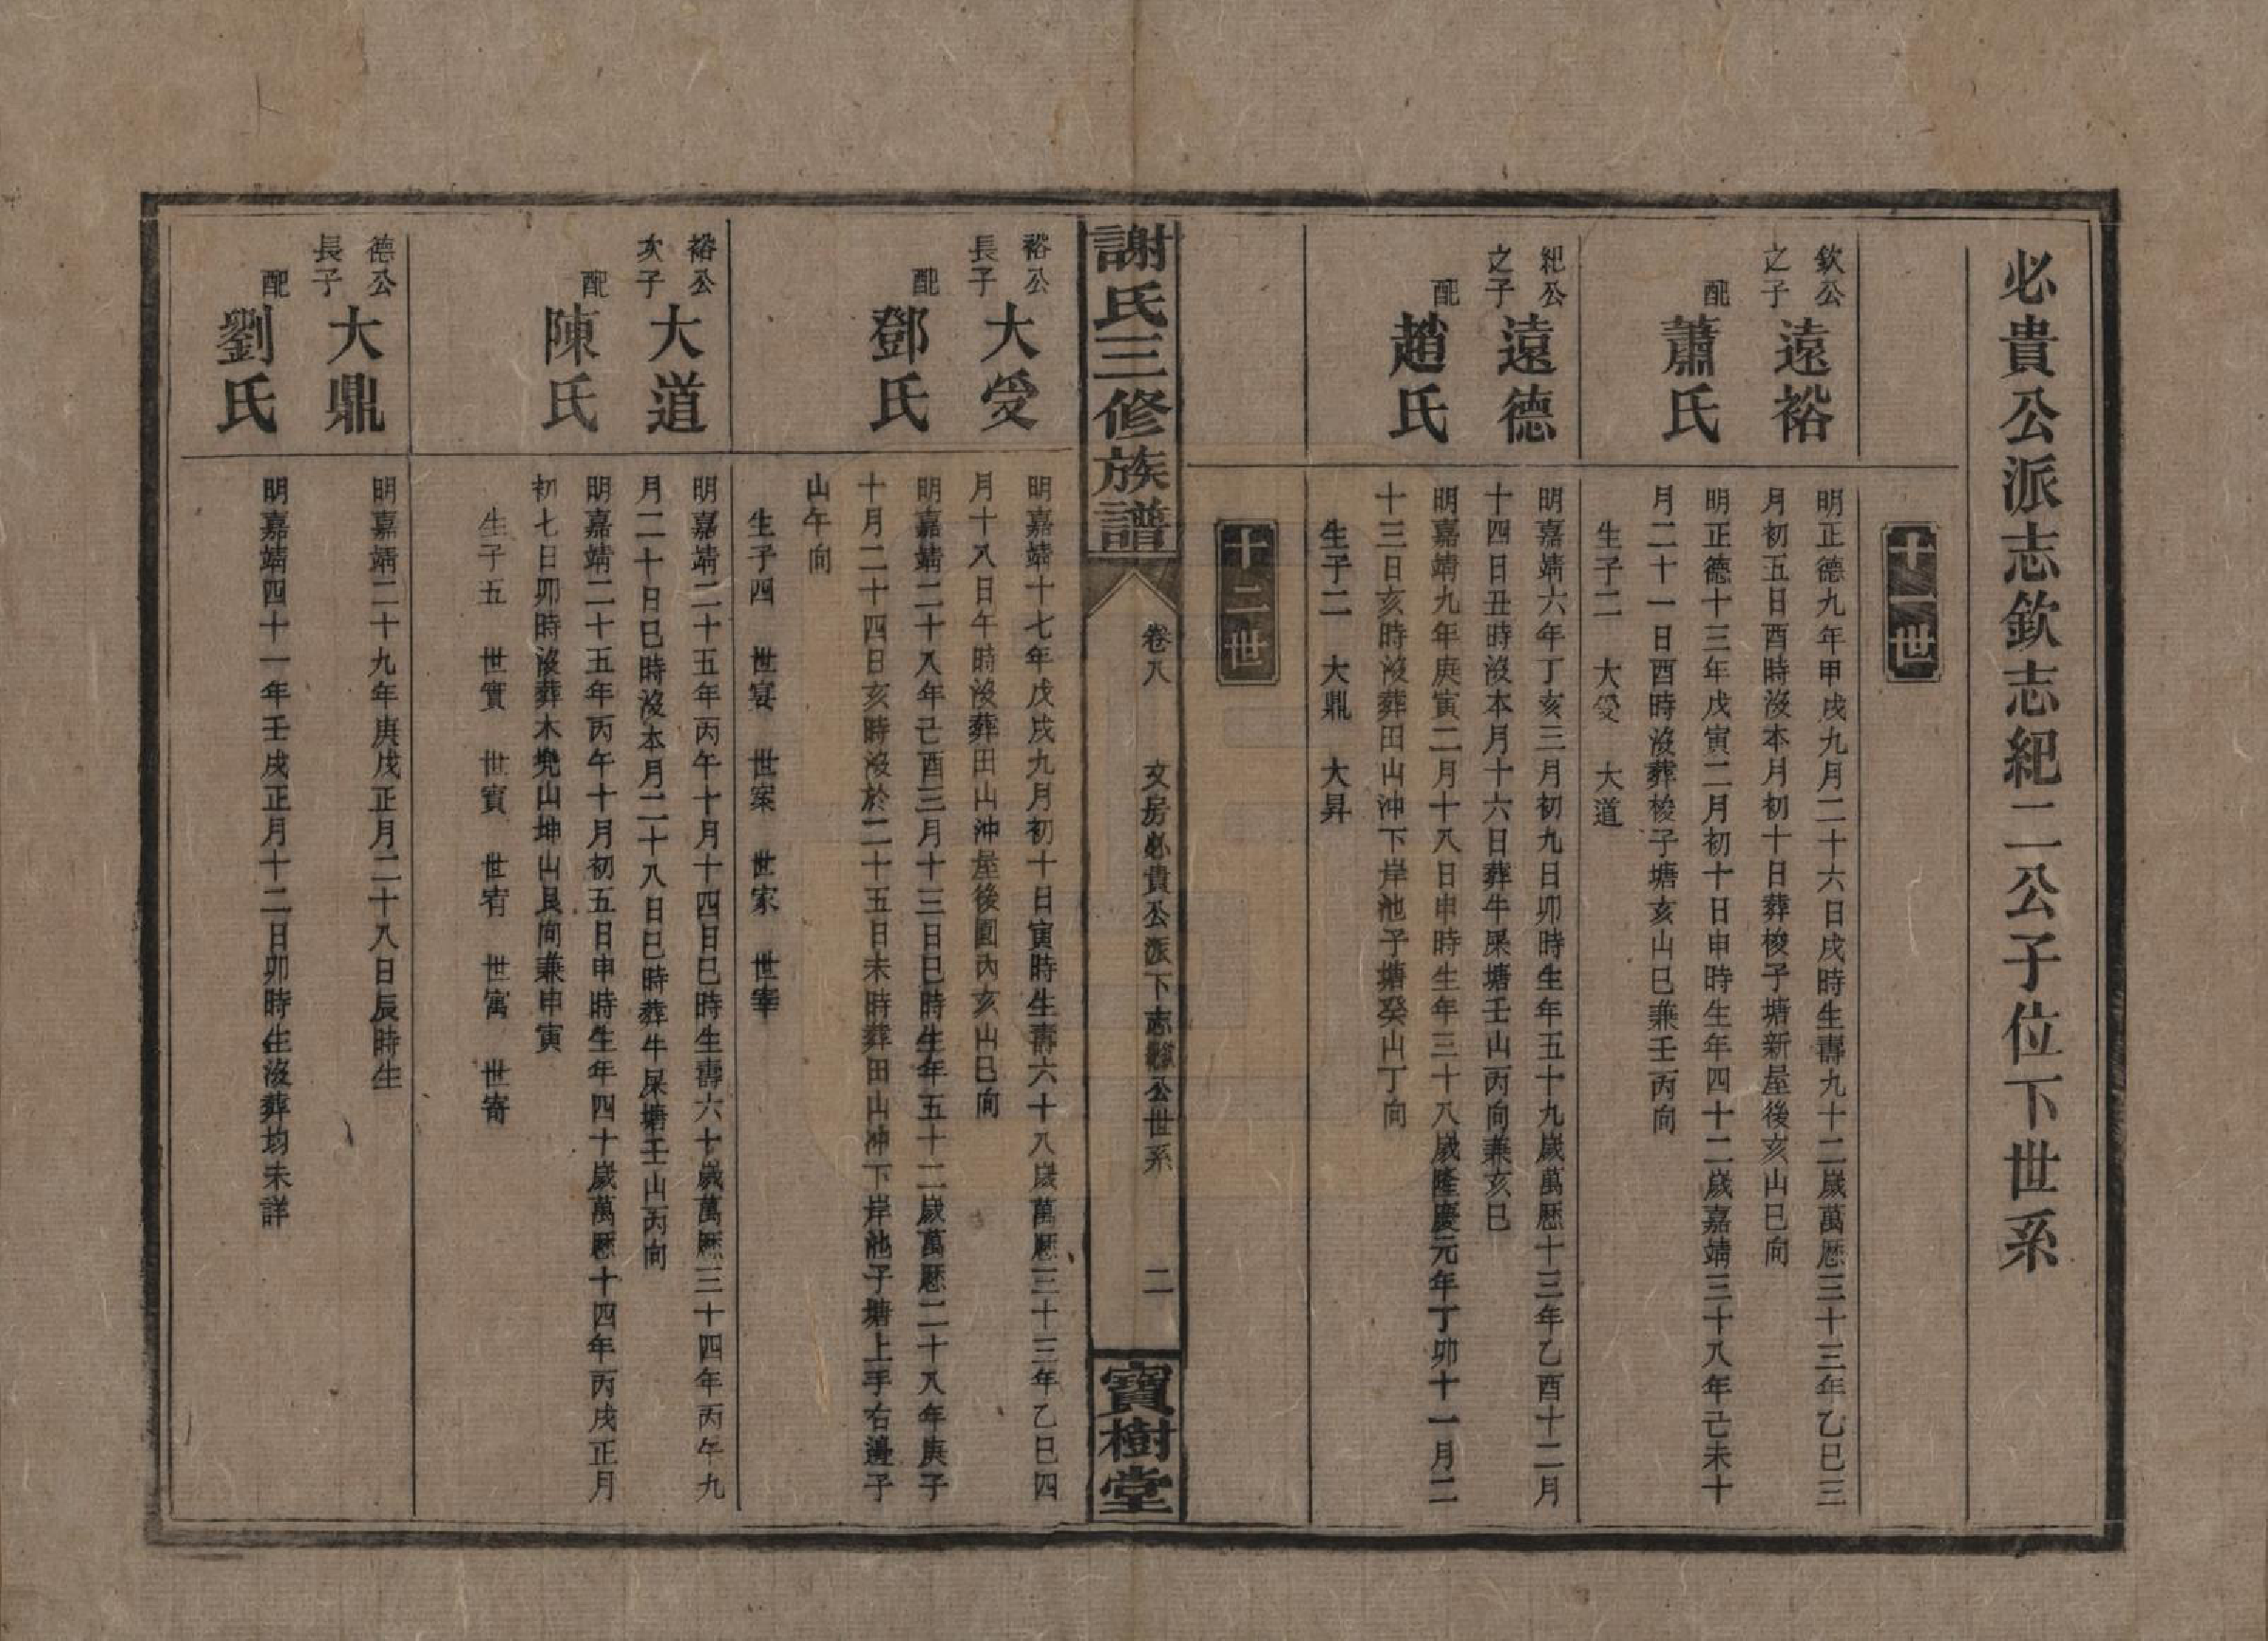 必貴公派志欽志紀二公子位下世系
十一世
欽公之子 遠裕
明正德九年甲戌九月二十六日戌時生壽九十二歲萬厯三十三年乙巳三
月初五日酉時沒本月初十日葬梭子塘新屋後亥山巳向
配 蕭氏
明正德十三年戊寅二月初十日申時生年四十二歲嘉靖三十八年己未十
月二十一日酉時沒葬梭子塘亥山巳兼壬丙向
生子二 大受 大道
紀公之子 遠德
明嘉靖六年丁亥三月初九日卯時生年五十九歲萬厯十三年乙酉十二月
十四日丑時沒本月十六日葬牛屎塘壬山丙向兼亥巳
配 趙氏
明嘉靖九年庚寅二月十八日申時生年三十八歲隆慶元年丁卯十一月二
十三日亥時沒葬田山沖下岸池子塘癸山丁向
生子二 大鼎 大昇
十二世
謝氏三修族譜
卷八 文房必貴公派下志 公世系 二
寶樹堂
裕公長子 大受
明嘉靖十七年戊戌九月初十日寅時生壽六十八歲萬厯三十三年乙巳四
月十八日午時沒葬田山沖屋後園內亥山巳向
配 鄧氏
明嘉靖二十八年己酉三月十三日巳時生年五十二歲萬厯二十八年庚子
十月二十四日亥時沒於二十五日未時葬田山沖下岸池子塘上手右邊子
山午向
生子四 世宴 世案 世家 世宰
裕公次子 大道
明嘉靖二十五年丙午十月十四日巳時生壽六十歲萬厯三十四年丙午九
月二十日巳時沒本月二十八日巳時葬牛屎塘壬山丙向
配 陳氏
明嘉靖二十五年丙午十月初五日申時生年四十歲萬厯十四年丙戌正月
初七日卯時沒葬木兠山坤山艮向兼申寅
生子五 世實 世賓 世宥 世寓 世寄
德公長子 大鼎
明嘉靖二十九年庚戌正月二十八日辰時生
配 劉氏
明嘉靖四十一年壬戌正月十二日卯時生沒葬均未詳